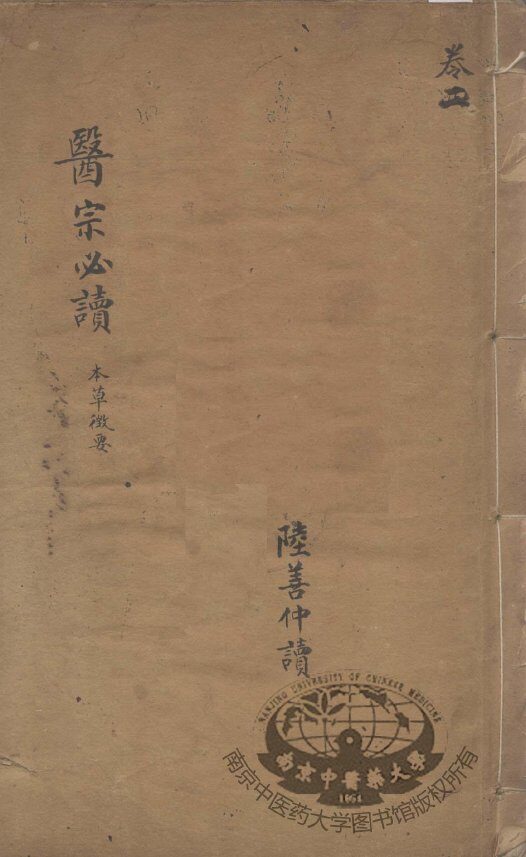 卷四
陸善仲讀
醫宗必讀
本草徵要
NANJING UNIVERSITY OF CHINESE MEDICINE
南京中醫藥大學
南京中医药大学图书馆版权所有